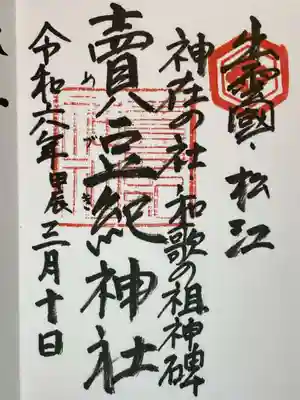 出雲國・松江
神在の社 和歌の祖神碑
賣豆紀神社
めづき
令和六年甲辰三月十日